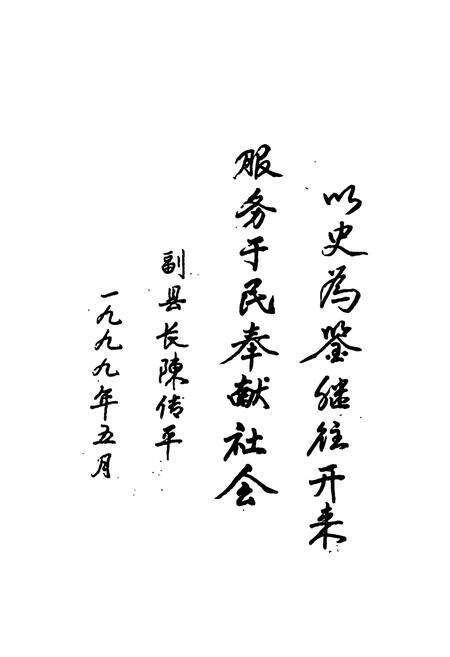 以史為鑒继往开来
服务于民奉献社会
副县长陳传平
一九九九年五月